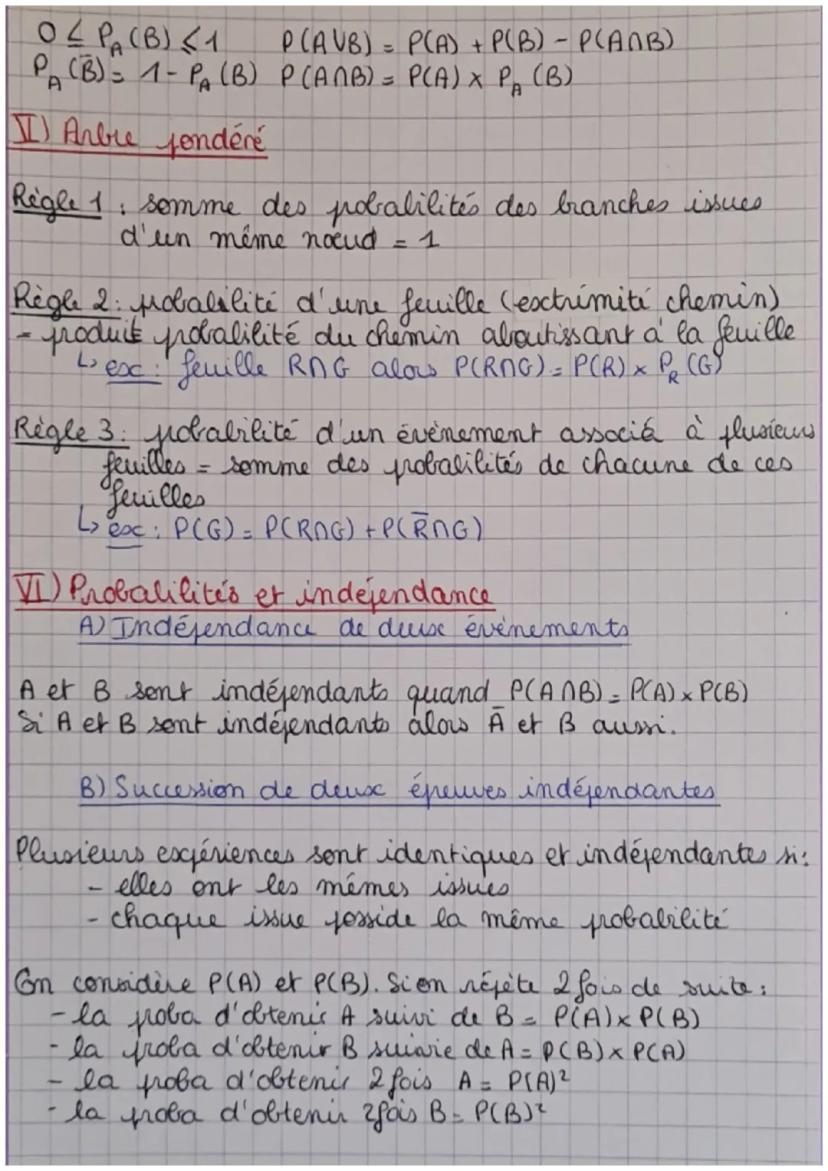 0 ≤ P_A(B) ≤ 1 P(A∪B) = P(A) + P(B) - P(A∩B)
P_A(B̄) = 1 - P_A(B) P(A∩B) = P(A) × P_A(B)
V) Arbre pondéré
Règle 1 : somme des probabilités des branches issues
d'un même noeud = 1
Règle 2 : probabilité d'une feuille (extrimité chemin)
= produit probabilité du chemin aboutissant à la feuille
↳ ex : feuille R∩G alors P(R∩G) = P(R) × P_R(G)
Règle 3 : probabilité d'un évènement associé à plusieurs
feuilles = somme des probabilités de chacune de ces
feuilles
↳ ex : P(G) = P(R∩G) + P(R̄∩G)
VI) Probabilités et indépendance
A) Indépendance de deux évènements
A et B sont indépendants quand P(A∩B) = P(A) × P(B)
Si A et B sont indépendants alors Ā et B aussi.
B) Succession de deux épreuves indépendantes
Plusieurs expériences sont identiques et indépendantes si :
- elles ont les mêmes issues
- chaque issue posside la même probabilité
On considère P(A) et P(B). Si on répète 2 fois de suite :
- la proba d'obtenir A suivi de B = P(A) × P(B)
- la proba d'obtenir B suivie de A = P(B) × P(A)
- la proba d'obtenir 2 fois A = P(A)²
- la proba d'obtenir 2 fois B = P(B)²